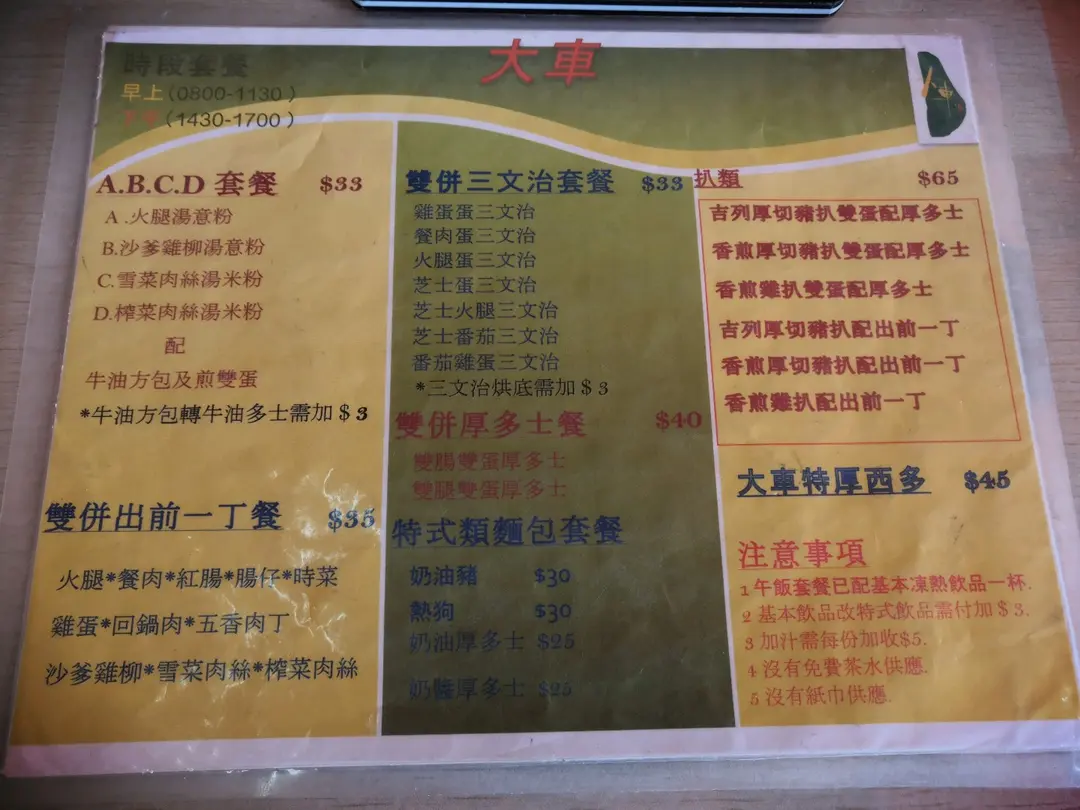 大車
時段套餐
早上(0800-1130)
(1430-1700)
A.B.C.D 套餐 $33
A .火腿湯意粉
B.沙爹雞柳湯意粉
C.雪菜肉絲湯米粉
D.榨菜肉絲湯米粉
配
牛油方包及煎雙蛋
*牛油方包轉牛油多士需加 $ 3
雙併出前一丁餐 $35
火腿*餐肉*紅腸*腸仔*時菜
雞蛋*回鍋肉*五香肉丁
沙爹雞柳*雪菜肉絲*榨菜肉絲
雙併三文治套餐 $33
雞蛋蛋三文治
餐肉蛋三文治
火腿蛋三文治
芝士蛋三文治
芝士火腿三文治
芝士番茄三文治
番茄雞蛋三文治
*三文治烘底需加 $ 3
雙併厚多士餐 $40
雙腸雙蛋厚多士
雙腿雙蛋厚多士
特式類麵包套餐
奶油豬 $30
熱狗 $30
奶油厚多士 $25
奶醬厚多士 $25
扒類 $65
吉列厚切豬扒雙蛋配厚多士
香煎厚切豬扒雙蛋配厚多士
香煎雞扒雙蛋配厚多士
吉列厚切豬扒配出前一丁
香煎厚切豬扒配出前一丁
香煎雞扒配出前一丁
大車特厚西多 $45
注意事項
1 午飯套餐已配基本凍熱飲品一杯.
2 基本飲品改特式飲品需付加 $ 3.
3 加汁需每份加收$5.
4 沒有免費茶水供應.
5 沒有紙巾供應.